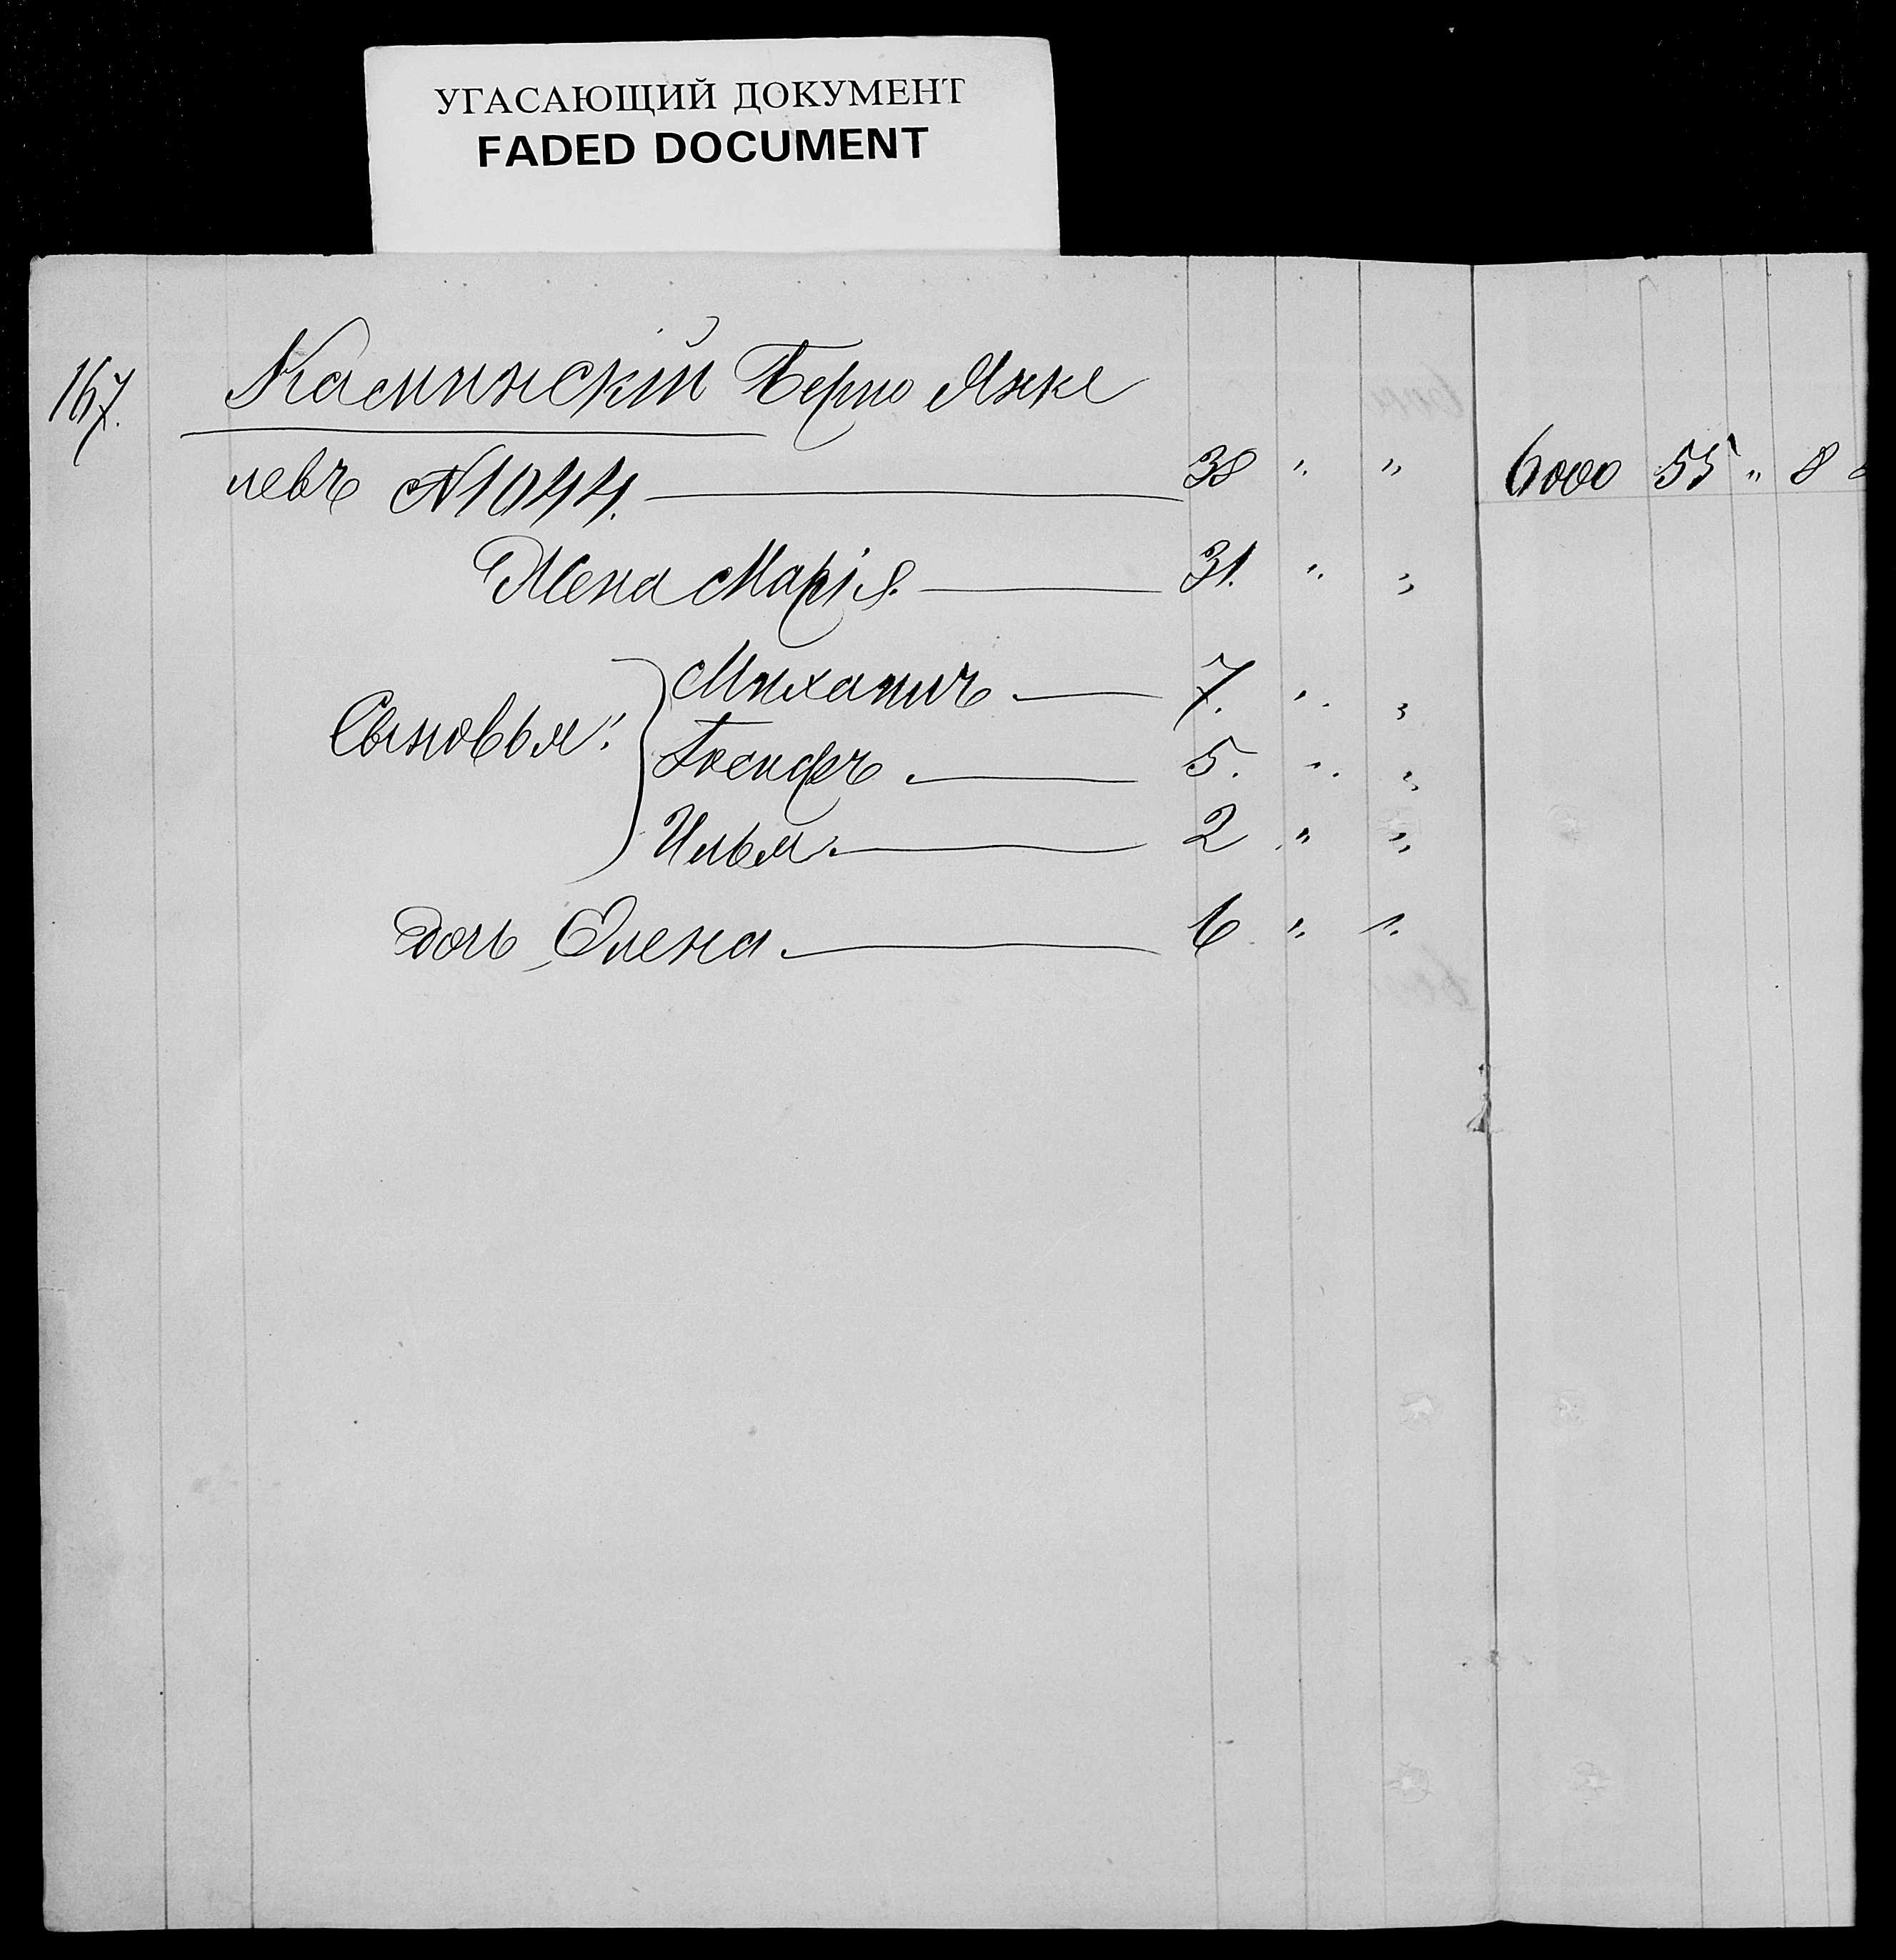 УГАСАЮЩИЙ ДОКУМЕНТ
FADED DOCUMENT
167. Каминскій Берко Янке
левъ №1044. 38 " " 6000 55 " 8
Жена Марія. 31. " "
Сыновья: Михаилъ 7. " "
Іосифъ 5. " "
Илья 2 " "
дочь Елена 6 " "